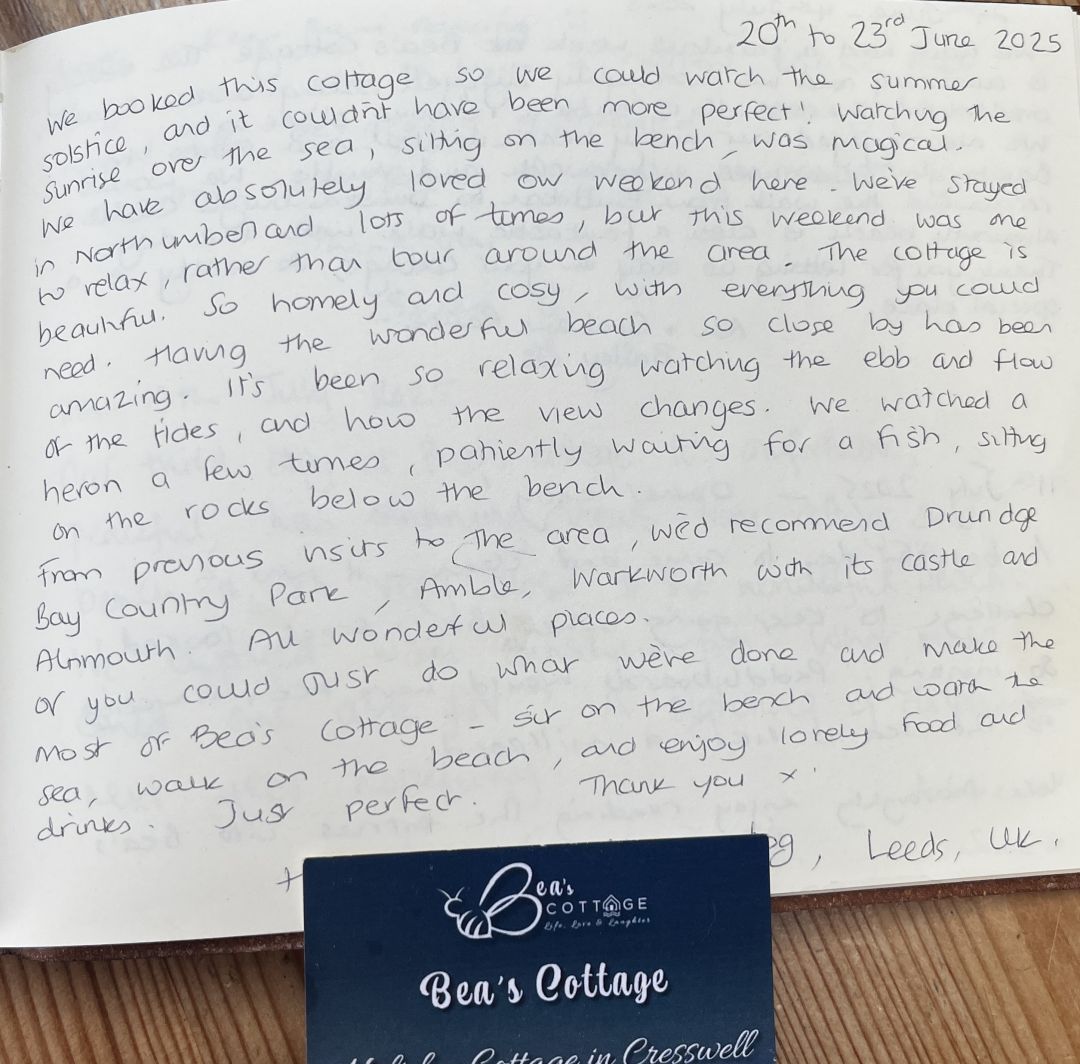 20th to 23rd June 2025
We booked this cottage so we could watch the summer
solstice, and it couldn't have been more perfect! Watching the
sunrise over the sea, sitting on the bench, was magical.
We have absolutely loved our weekend here. We've stayed
in Northumberland lots of times, but this weekend was one
to relax, rather than tour around the area. The cottage is
beautiful. So homely and cosy, with everything you could
need. Having the wonderful beach so close by has been
amazing. It's been so relaxing watching the ebb and flow
of the tides, and how the view changes. We watched a
heron a few times, patiently waiting for a fish, sitting
on the rocks below the bench.
From previous visits to the area, we'd recommend Druridge
Bay Country Park, Amble, Warkworth with its castle and
Alnmouth. All wonderful places.
Or you could just do what we've done and make the
most of Bea's Cottage - sit on the bench and watch the
sea, walk on the beach, and enjoy lovely food and
drinks. Just perfect. Thank you x
, Leeds, UK.
Bea's
COTTAGE
Life, Love & Laughter
Bea's Cottage
Cottage in Cresswell